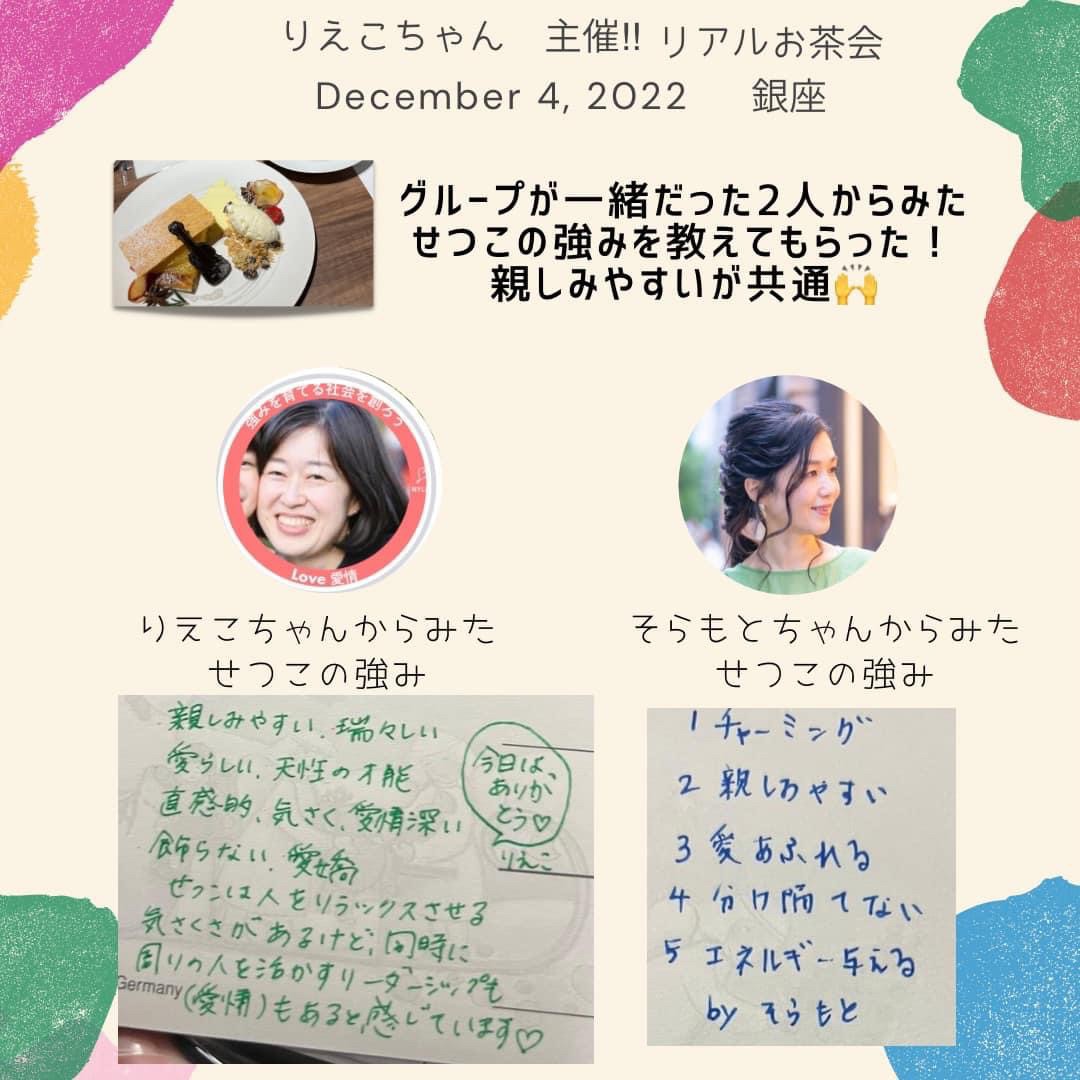 りえこちゃん 主催!! リアルお茶会
December 4, 2022 銀座
グループが一緒だった2人からみた
せつこの強みを教えてもらった！
親しみやすいが共通🙌
強みを育てる社会を創ろう
Love 愛情
りえこちゃんからみた
せつこの強み
親しみやすい、瑞々しい
愛らしい、天性の才能
直感的、気さく、愛情深い
飾らない、愛嬌
せつこは人をリラックスさせる
気さくさがあるけど、同時に
周りの人を活かすリーダーシップも
(愛情)もあると感じています♡
Germany
今日は、
ありが
とう♡
りえこ
そらもとちゃんからみた
せつこの強み
1 チャーミング
2 親しみやすい
3 愛あふれる
4 分け隔てない
5 エネルギー与える
by そらもと